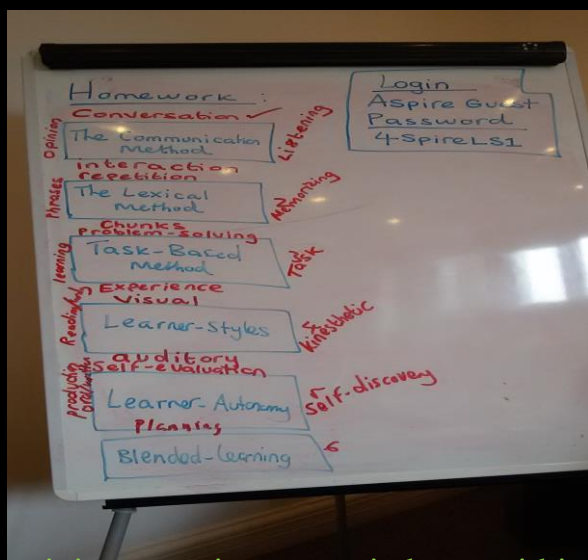 Homework :
Conversation ✓
Opinion
The Communication
Method
Listening
interaction
repetition
Phrases
The Lexical
Method
Memorizing
Chunks
problem-solving
learning
Task-Based
Method
Task
Experience
Visual
Learner-Styles
Kinesthetic
auditory
Self-evaluation
production
Learner-Autonomy
Self-discovery
Planning
Blended-Learning
Login
Aspire Guest
Password
4-SpireLS1